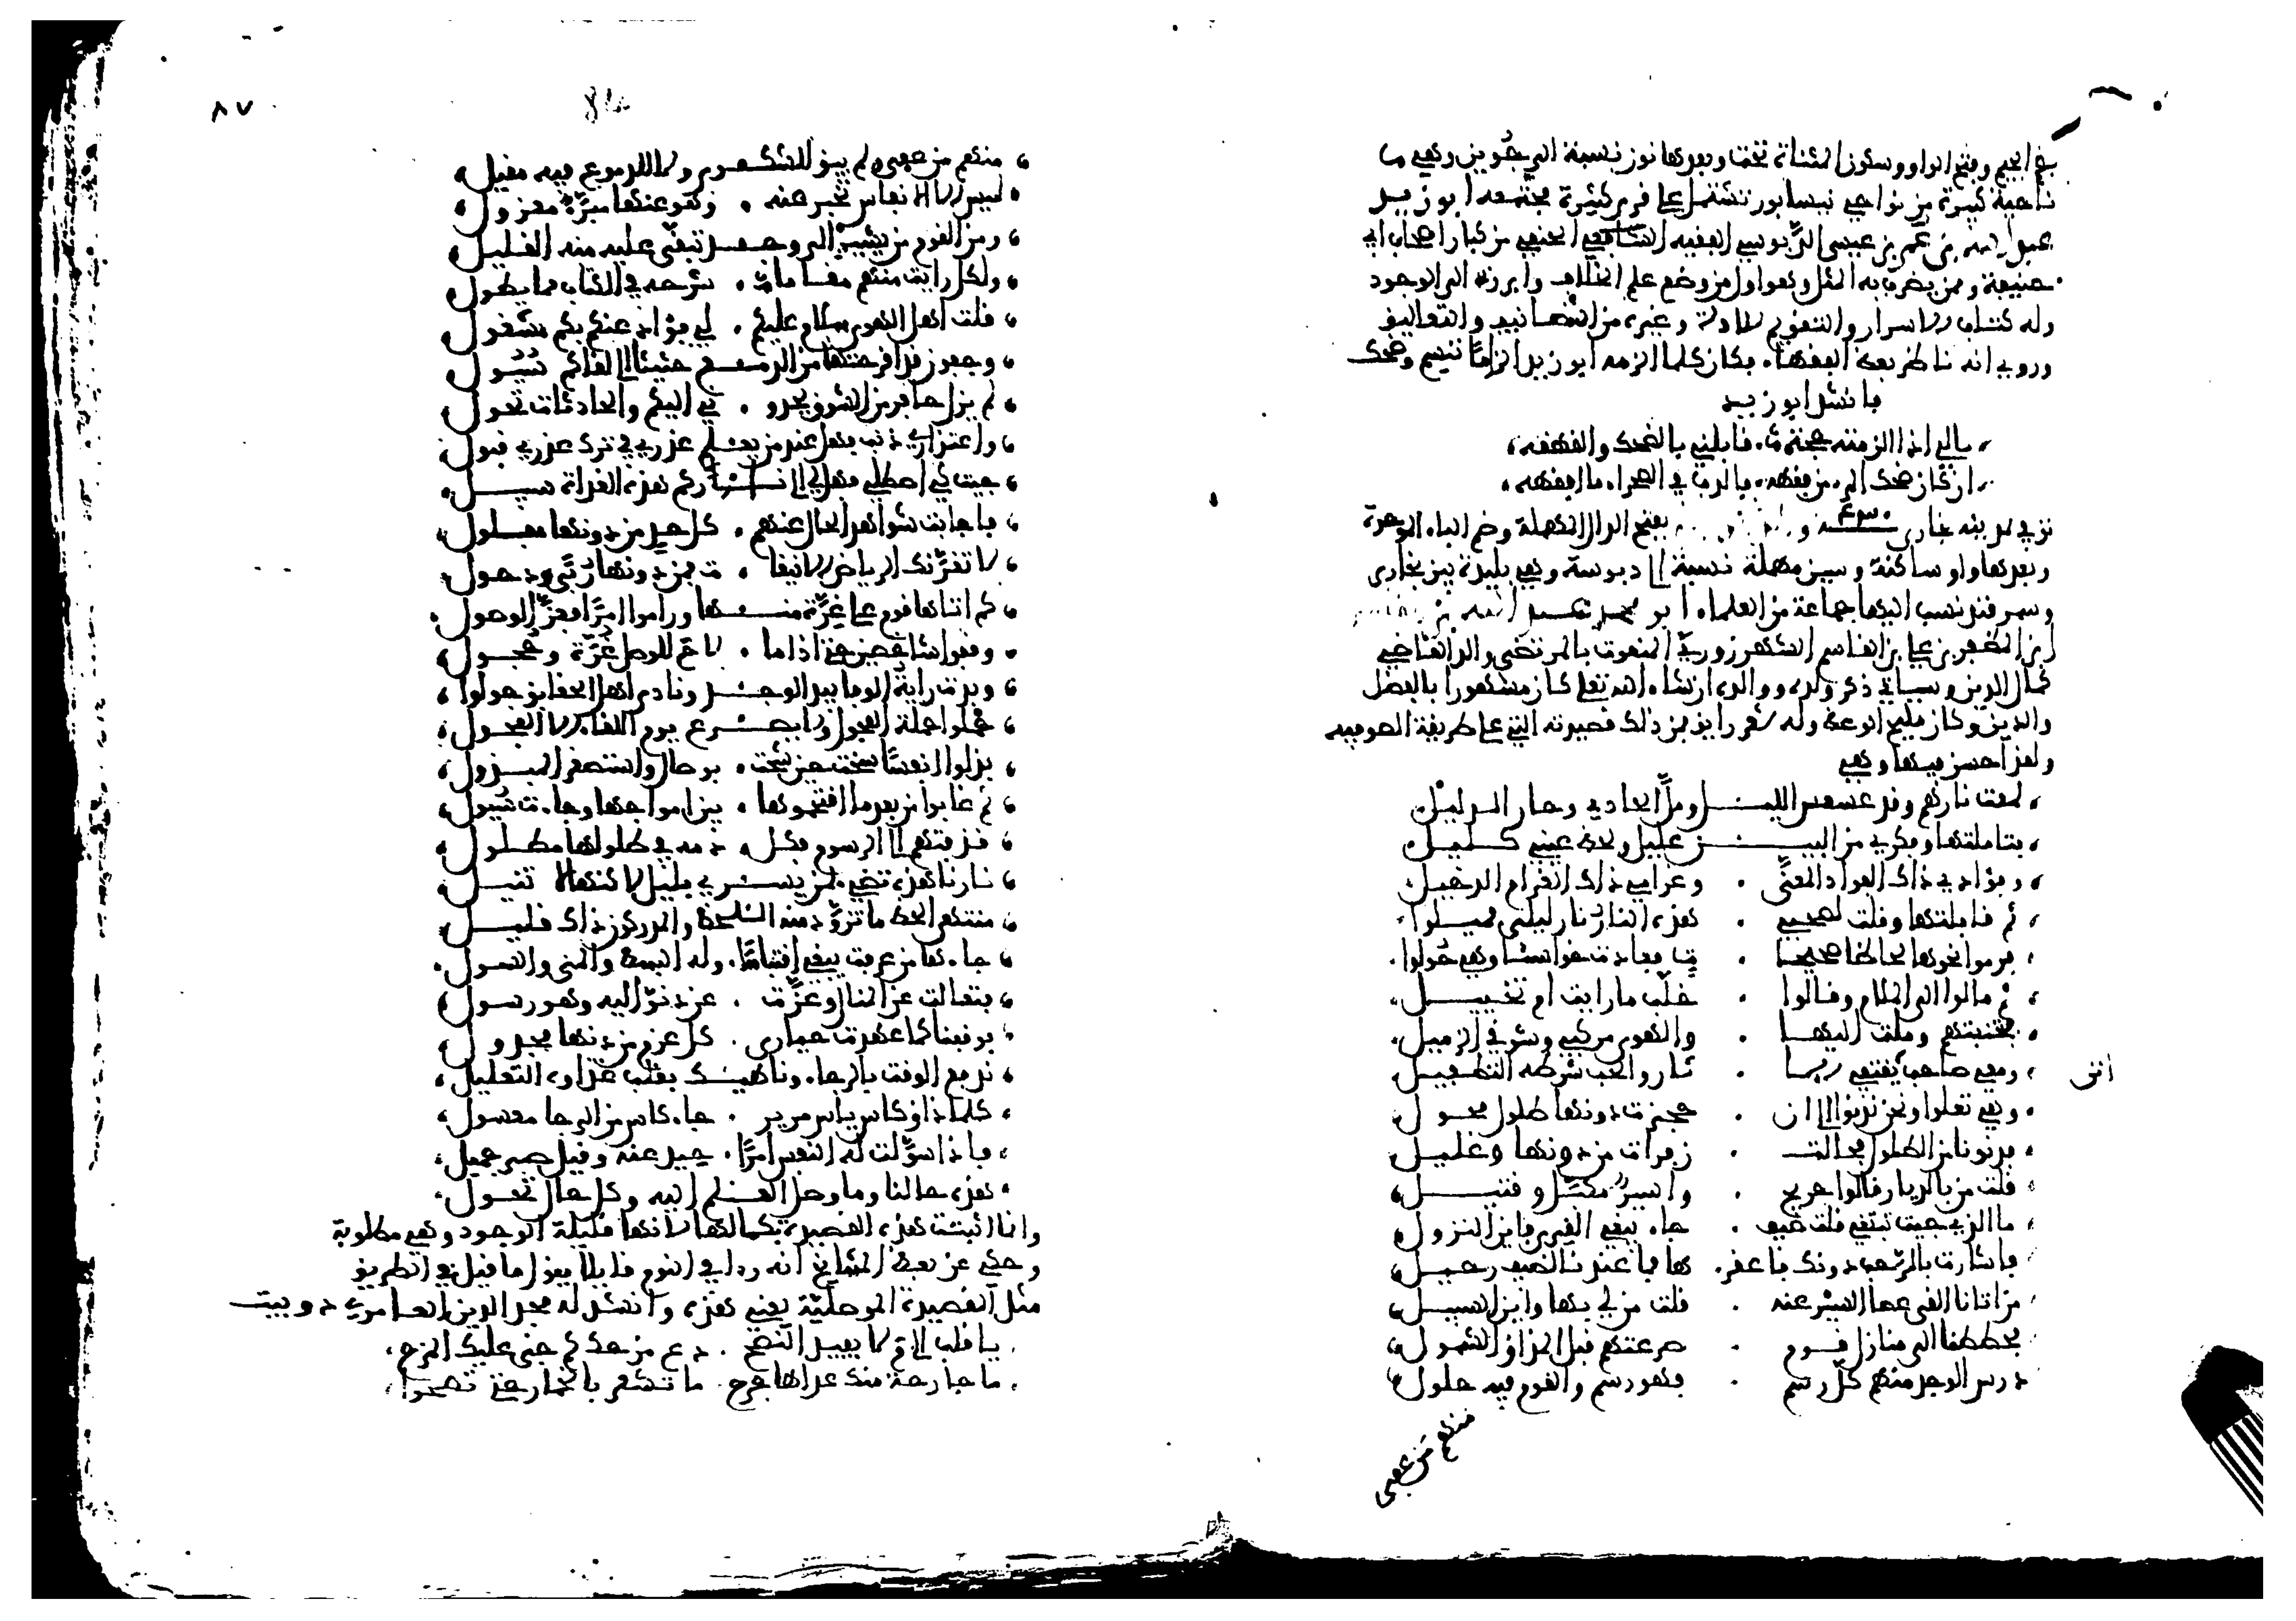 بضم الجيم وفتح الواو وسكون المثناة تحت وبعدها نون نسبة الى جُوين وهي
ناحية كبيرة من نواحي نيسابور تشتمل على قرى كثيرة مجتمعه ابو زيد
عبد الله بن عمر بن عيسى الدبوسي الفقيه الحنفي من كبار اصحاب ابي
حنيفة وممن يضرب به المثل وهو اول من وضع علم الخلاف وابرزه الى الوجود
وله كتاب الاسرار والتقويم للادلة وغيره من التصانيف والتعاليق
وروي انه ناظر بعض الفقهاء فكان كلما الزمه ابو زيد الزاما تبسم وضحك
فانشد ابو زيد
مالي اذا الزمته حجة قابلني بالضحك والقهقهه
ان كان ضحك المرء من فقهه فالدب في الصحراء ما افقهه
توفي بمدينة بخارى سنة بفتح الدال المهملة وضم الباء الموحدة
وبعدها واو ساكنة وسين مهملة نسبة الى دبوسة وهي بليدة بين بخارى
وسمرقند نسب اليها جماعة من العلماء ابو محمد عبد الله بن القاسم
ابن المظفر بن علي بن القاسم الشهرزوري المنعوت بالمرتضى والد القاضي
كمال الدين وسياتي ذكر ولده ووالده ان شاء الله تعلى كان مشهورا بالفضل
والدين وكان مليح الوعظ وله شعر رايق فمن ذلك قصيدته التي على طريقة الصوفيه
ولقد احسن فيها وهي
لمعت نارهم وقد عسعس الليل ومل الحادي وحار الدليل
فتاملتها وفكري من البين عليل ولحظ عيني كليل
وفؤادي ذاك الفؤاد المعنَّى وغرامي ذاك الغرام الدخيل
ثم قابلتها وقلت لصحبي هذه النار نار ليلى فميلوا
فرموا نحوها لحاظا صحيحا ت فعادت خواسئا وهي حُولوا
ثم مالوا الى الملام وقالوا خلّب ما رايت ام تخييل
فتجنبتهم وملت اليها والهوى مركبي وشوقي الزميل
ومعي صاحب يقتفي الاثا ثار والحب شرطه التطفيل
وهي تعلوا ونحن ندنو الى ان حجزت دونها طلول محول
فدنونا من الطلول فحالت زفرات من دونها وغليل
قلت من بالديار قالوا جريح واسير مكبَّل وقتيل
ما الذي جيت تبتغي قلت ضيف جاء يبغي القرى فاين النزول
فاشارت بالرحب دونك فاعقر ها فما عندنا لضيف رحيل
من اتانا القى عصا السير عنه قلت من لي بها واين السبيل
فحططنا الى منازل قوم صرعتهم قبل المذاق الشمول
درس الوجد منهم كل رسم فهو رسم والقوم فيه حلول
منهم من عفى
٨٧
منهم من عفى ولم يبق للشكوى ولا للدموع فيه مقيل
ليس الا الانفاس تخبر عنه وهو عنها مبرَّء معزول
ومن القوم من يشير الى وجد تبقَّى عليه منه القليل
ولكل رايت منهم مقاما شرحه في الكتاب مما يطول
قلت اهل الهوى سلام عليكم لي فؤاد عنكم بكم مشغول
وجفون قد اقرحتها من الدمع حثيثا الى لقائكم سُيُول
لم يزل حافز من الشوق يحدو ني اليكم والحادثات تحول
واعتذاري ذنب فهل عند من يعلم عذري في ترك عذري قبول
جيت كي اصطلي فهل لي الى ناركم هذه الغداة سبيل
فاجابت شواهد الحال عنهم كل حد من دونها مفلول
لا تغرنك الرياض الانيقا ت فمن دونها رُبًى ودحول
كم اتاها قوم على غرّة منها وراموا امرًا فعزّ الوصول
وقفوا شاخصين حتى اذا ما لاح للوصل غُرّة وحُجول
وبدت راية الوفا بيد الوجد ونادى اهل الحقايق جولوا
حملوا حملة الفحول ولا يصرع يوم اللقاء الا الفحول
بذلوا انفسًا سخت حين شحت بوصال واستصغر المبذول
ثم غابوا من بعدما اقتحموها بين امواجها وجاءت سُيول
قذفتهم الى الرسوم فكل دمه في طلولها مطلول
نارنا هذه تضيء لمن يسري بليل لاكنها لا تنيل
منتهى الحظ ما تزوّد منه اللحظ والمدركون ذاك قليل
جاءها من عرفت يبغي اقتباسا وله البسط والمنى والسول
فتعالت عن المنال وعزَّت عن دنوّ اليه وهو رسول
فوقفنا كما عهدت حيارى كل عزم من دونها مخذول
ندفع الوقت بالرجاء وناهيك بقلب غذاؤه التعليل
كلما ذاق كاس ياس مرير جاء كاس من الرجا معسول
فاذا سوَّلت له النفس امرًا حيد عنه وقيل صبر جميل
هذه حالنا وما وصل العلم اليه وكل حال تحول
وانما اثبتت هذه القصيدة بكمالها لانها قليلة الوجود وهي مطلوبة
وحكي عن بعض المشايخ انه رءا في النوم قايلا يقول ما قيل في الطريق
مثل القصيدة الموصليّة يعني هذه وانشد له مجد الدين العامري دو بيت
يا قلب الى كم لا يفيد النصح دع مزحك كم جنى عليك المزح
ما جارحة منك عداها جرح ما تشعر بالخمار حتى تصحوا